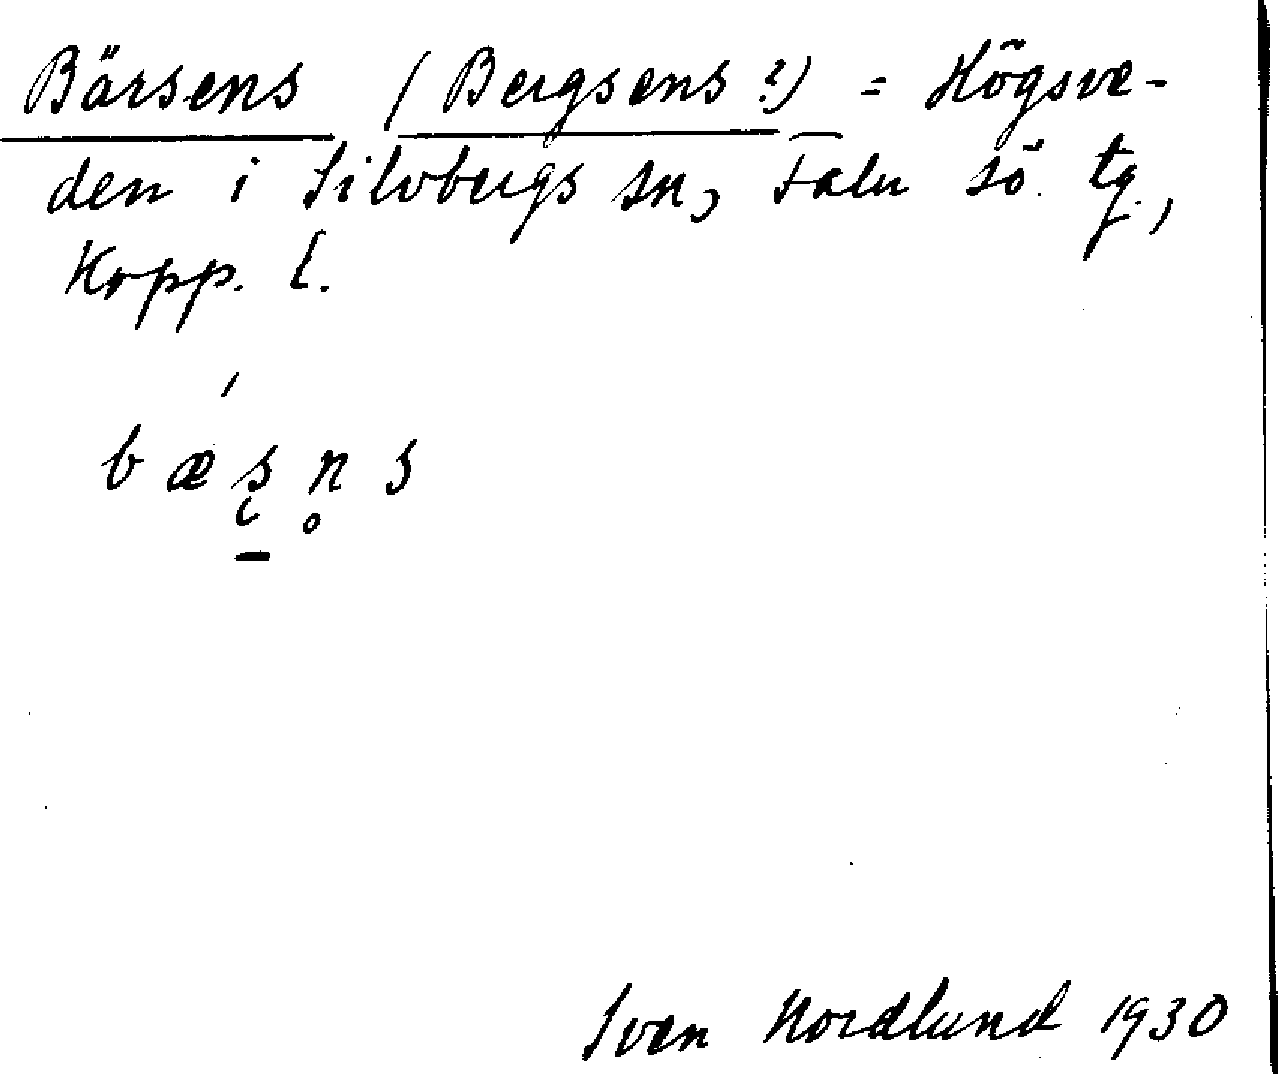 Bärsens (Bergsens?) = Högsve-
den i Silvbergs sn, Falu sö. tg.,
Kopp. l.
b æ s̨̱ n̥ s
Sven Nordlund 1930